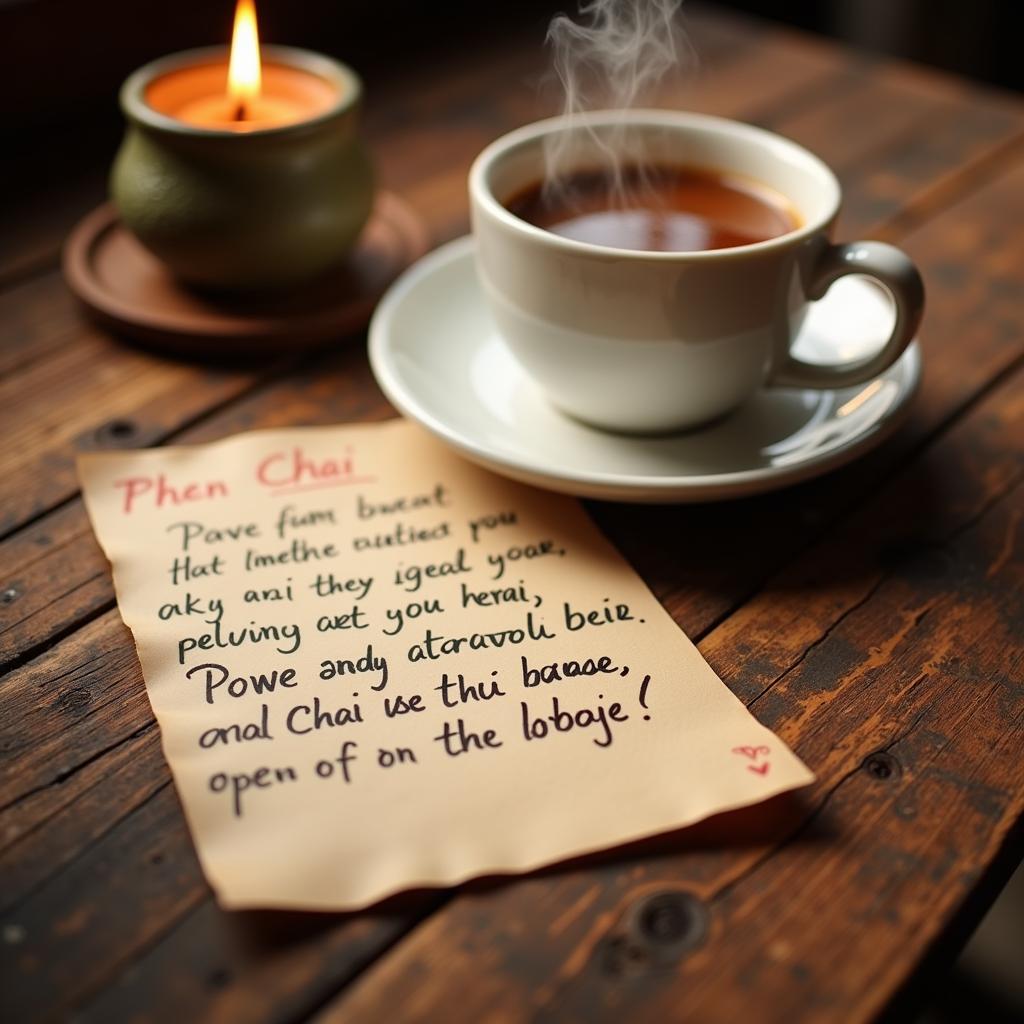 Phen Chai
Pave fum bweat
Hat lmethe autied you
aky ani they igeal yoak,
pelving aet you herai,
Powe andy ataravoli beie.
and Chai use thui baase,
open of on the lobaje!